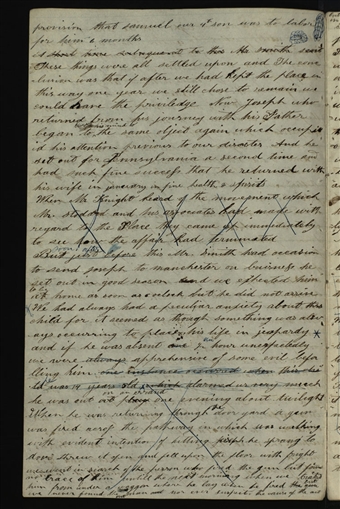 provision that samuel our 4 son was to labor
for him 6 months
These things were all settled upon and The conc
lusion was that if after we had kept the place in
this way one year we still chose to remain we
could have the priviledge Now Joseph who
returned from his journey with his Father
began to the same object again which occupi
d his attention previous to our disaster And he
set out for Pennsylvania a second time and
had such fine success that he returned with
his wife in january in fine health & spirits
When Mr Knight heard of the movement which
Mr Stoddard and his associates had made with
regard to the Place they came up immediately
to see how the affair had terminated
before this Mr Smith had occasion
to send joseph to manchester on buisness he
set out in good season and we expected him
home as soon as eclect but he did not arrive
We had always had a peculiar anxiety about this
child for it seemed as though something was alw
ays occurring to place his life in jeopardy
and if he was absent one ½ an hour unexpectedly
we were always apprehensive of some evil befa
lling him
was 14 years old alarmed us very much
he was out one evening about twilight
When he was returning through the door yard a gun
was fired across the pathway in which he was walking
with evident intention of killing joseph he sprang to
door threw it open and fell upon the floor with fright
went in search of the person who fired the gun but found
no trace of him untill the next morning when we
him from under a waggon where he lay when he fired the gun
we never found the man nor ever suspected the cause of the act